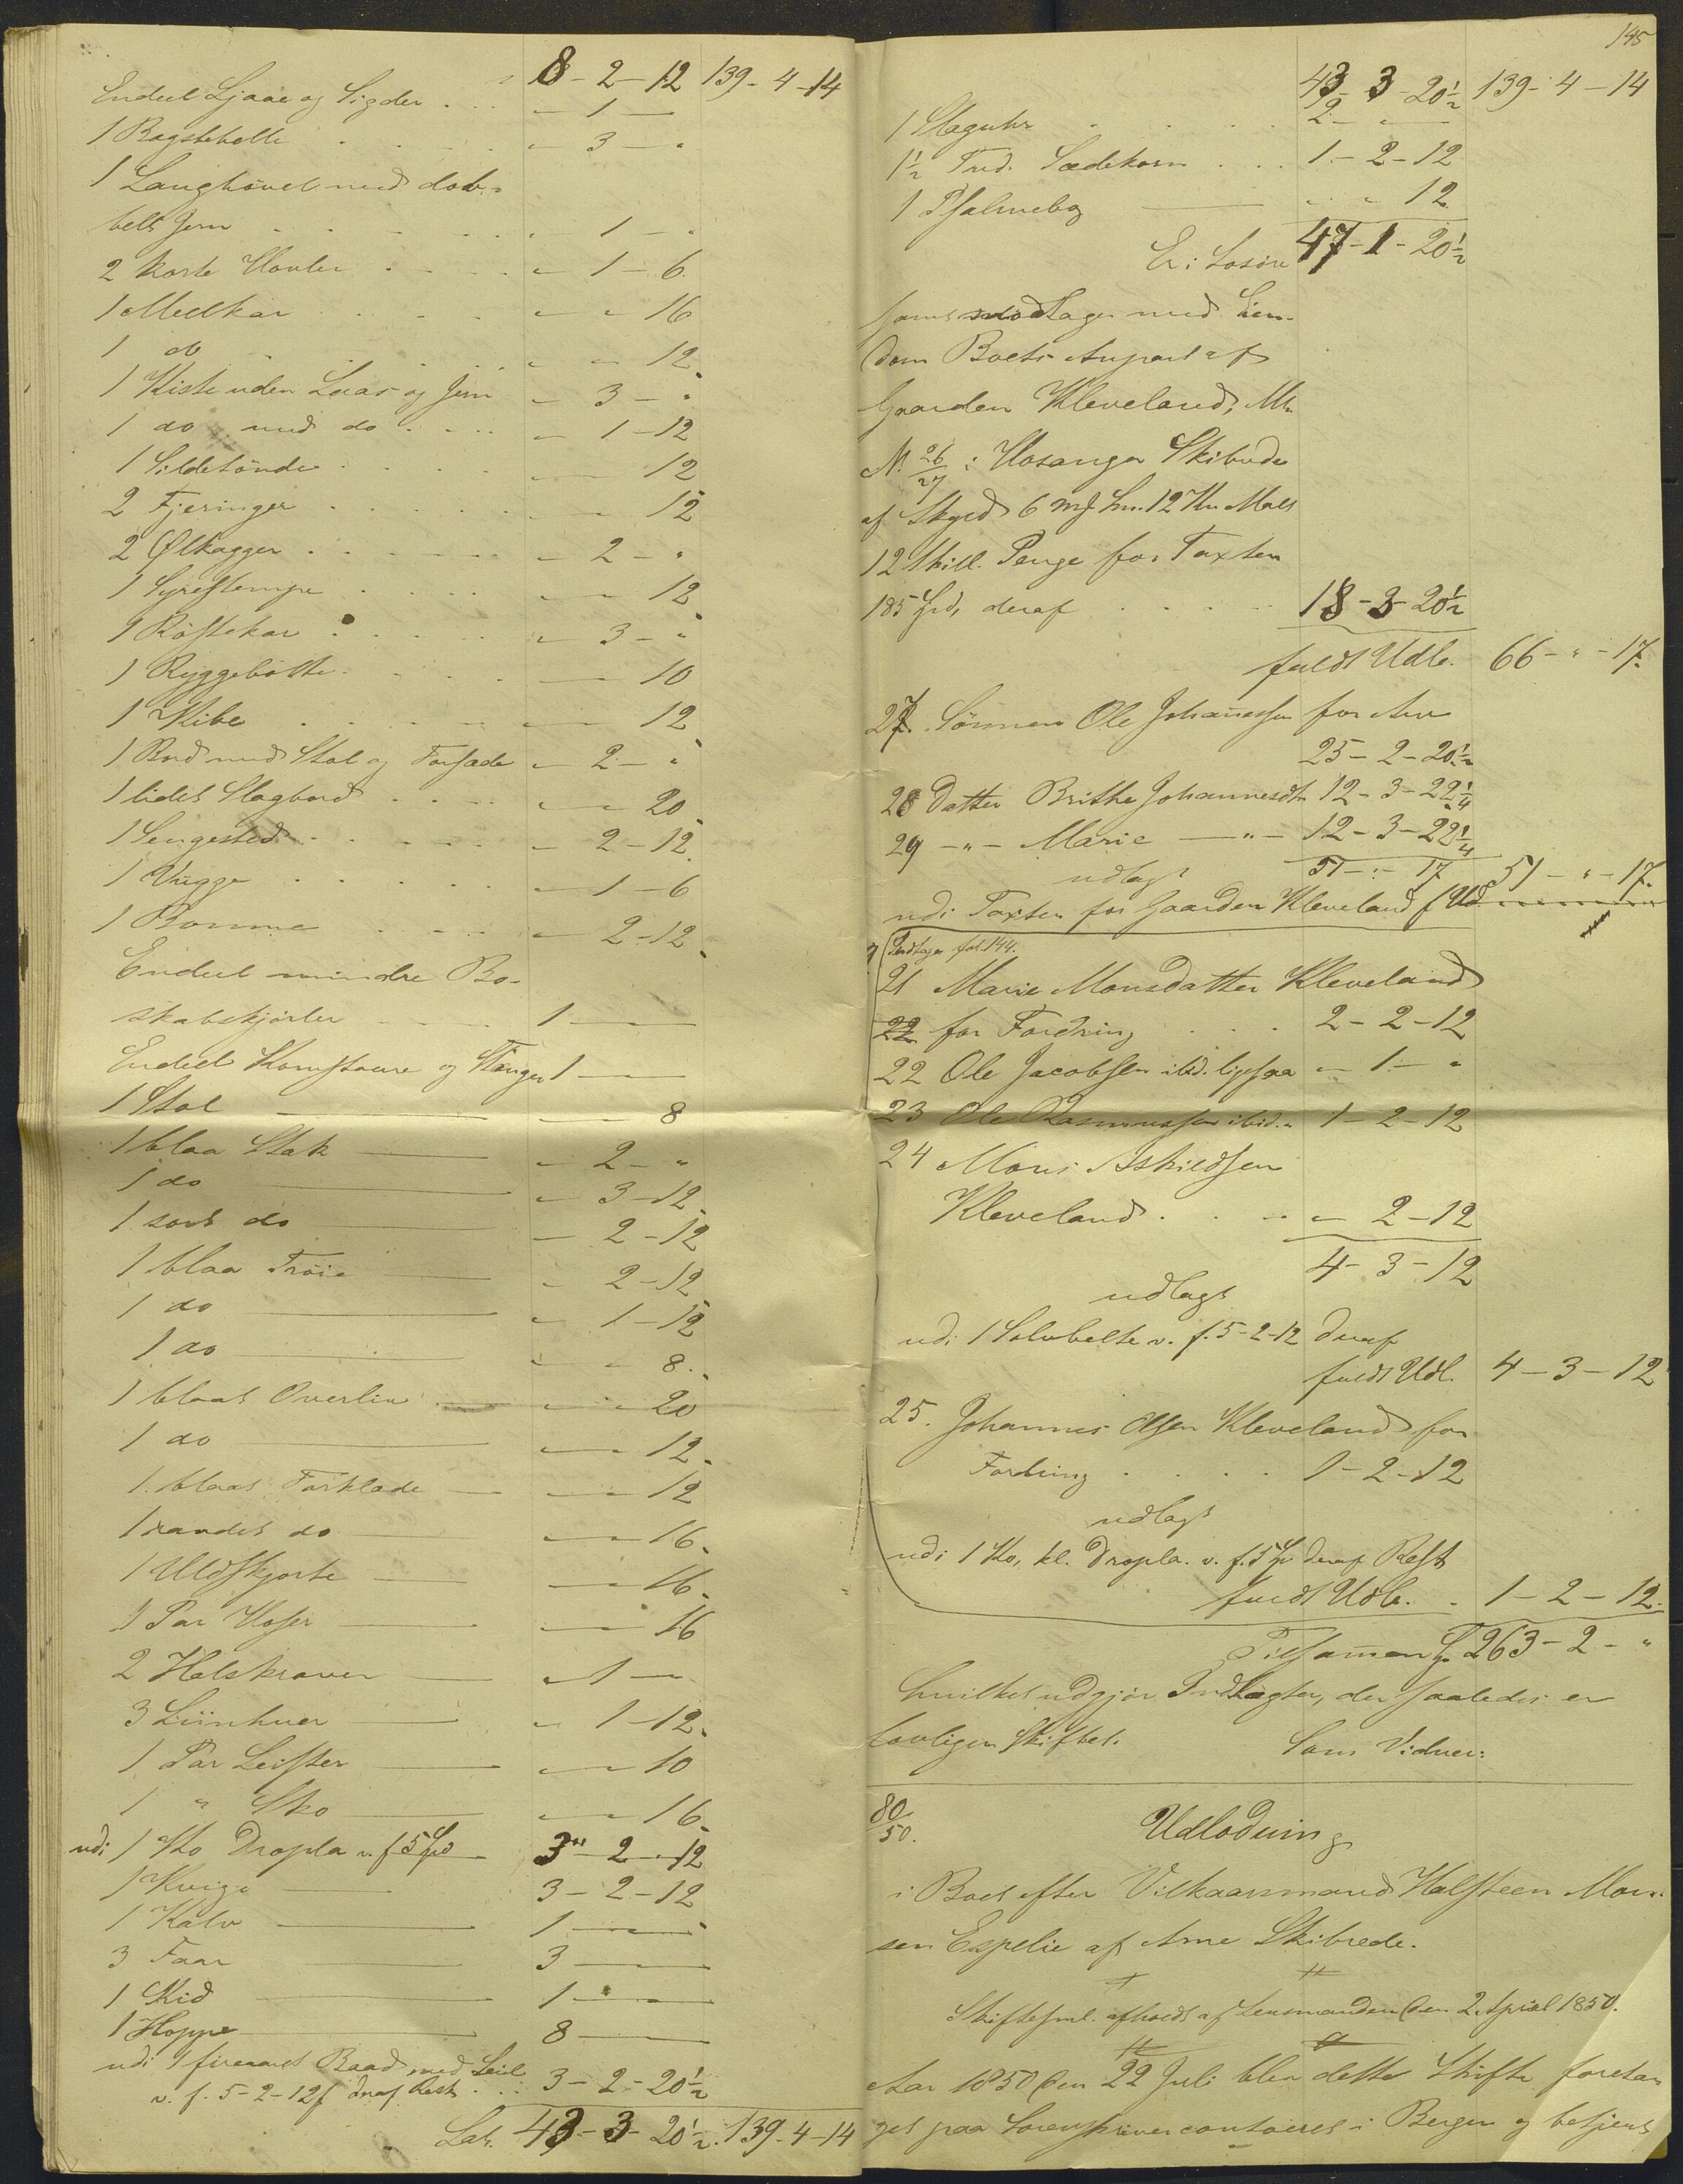 8 - 2 - 12 139 - 4 - 14
Endeel Ljaae og Sigder . . . " - 1 - "
1 Bagstehelle . . . . " - 3 - "
1 Langhövel med dob-
belt Jern . . . . . " - 1 - "
2 korte Hovler . . . . " - 1 - 6
1 Meelkar . . . " - " 16
1 do . . . . . " - " 12
1 Kiste uden Laas og Jern " - 3 - "
1 do med do . . . . " - 1 - 12
1 Sildetönde . . . . " - " 12
2 Fjeringer . . . . . " - " 12
2 Ølkagger . . . . . " - 2 - "
1 Syrestempe . . . . " - " 12
1 Röstekar . . . . " - 3 - "
1 Ryggebötte . . . . " - " 10
1 Kibe . . . . . " - " 12
1 Bord med Stol og Forsæde " - 2 - "
1 lidet Slagbord . . . . " - " 20
1 Sengested . . . . " - 2 - 12
1 Vugge . . . . . " - 1 - 6
1 Bomme . . . . " - 2 - 12
Endeel mindre Bo-
skabskjörler . . . . 1 - "
Endeel Kornstaure og Stænger 1 - "
1 Stol " - " 8
1 blaa Stak " - 2 - "
1 do " - 3 - 12
1 sort do " - 2 - 12
1 blaa Tröie " - 2 - 12
1 do " - 1 - 12
1 do " - " 8
1 blaat Overliv " - " 20
1 do " - " 12
1 blaat Forklæde " - " 12
1 randet do " - " 16
1 Uldskjorte " - " 16
1 Par Hoser " - " 16
2 Halskraver " - 1 - "
3 Liinhuer " - 1 - 12
1 Par Leister " - " 10
1 " Sko " - " 16
udi 1 Ko Dropla v. f. 5 Spd 3 - 2 - 12
1 Kvige 3 - 2 - 12
1 Kalv 1 - "
3 Faar 3 - "
1 Kid 1 - "
1 Hoppe 8 - "
udi 1 firearet Baad med Seil
v. f. 5-2-12 f deraf Rest . . 3 - 2 - 20 ½
Lat. 43 - 3 - 20 ½ 139 - 4 - 14
145
43 - 3 - 20 ½ 139 - 4 - 14
1 Slaguhr . . . . 2 - "
1½ Tnd. Sædekorn . . . 1 - 2 - 12
1 Psalmebog " - " 12
Er i Losöre 47 - 1 - 20 ½
som modtager med Eien-
dom Boets Anpart af
Gaarden Kleveland, Mtr.
N. 26/27 i Hosanger Skibrede
af Skyld 6 mk Sm. 12 Kr. Malt
12 Skill. Penge for Taxten
185 Spd, deraf . . . . 18 - 3 - 20 ½
fuldt Udl. 66 - " - 17
27. Sönnen Ole Johannessen for Arv
25 - 2 - 20 ½
28 Datter Brithe Johannesdtr 12 - 3 - 22 ¼
29 - " - Marie - " - 12 - 3 - 22 ¼
udlagt 51 - " - 17 51 - " - 17.
udi Taxten for Gaarden Kleveland f Udl
Indtages fol 144.
21 Marie Monsdatter Kleveland
22 for Fordring . . . 2 - 2 - 12
22 Ole Jacobsen ibid. ligesaa " - 1 - "
23 Ole Rasmussen ibid. " 1 - 2 - 12
24 Mons Askildsen
Kleveland . . . " - 2 - 12
4 - 3 - 12
udlagt
udi 1 Sølvbelte v. f. 5-2-12 deraf
fuldt Udl. 4 - 3 - 12
25. Johannes Olsen Kleveland for
Fordring . . . . 1 - 2 - 12
udlagt
udi 1 Ko, kl. Dropla. v. f. 5 Sp deraf Rest
fuldt Udl. . 1 - 2 - 12.
Tilsammen Sp. 263 - 2 - "
hvilket udgjör Indtægten, der saaledes er
lovligen skiftet. Som Vidner:
80/50. Udlodning
i Boet efter Vilkaarsmand Halsteen Mon-
sen Espelie af Arne Skibrede.
Skiftesml. afholdt af Lensmanden den 2. April 1850.
Aar 1850 den 22 Juli blev dette Skifte foreta-
get paa Sorenskrivercontoiret i Bergen og betjent